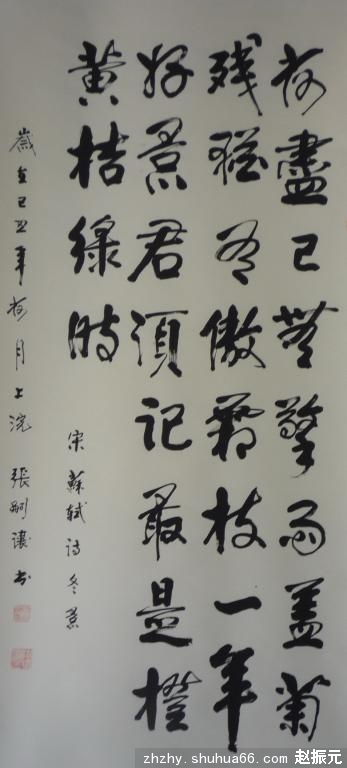 荷盡已無擎雨蓋菊
残猶有傲霜枝一年
好景君須記最是橙
黄桔緑時
宋蘇軾诗冬景
歲在己丑年荷月上浣張书
zhzhy.shuhua66.com 赵振元